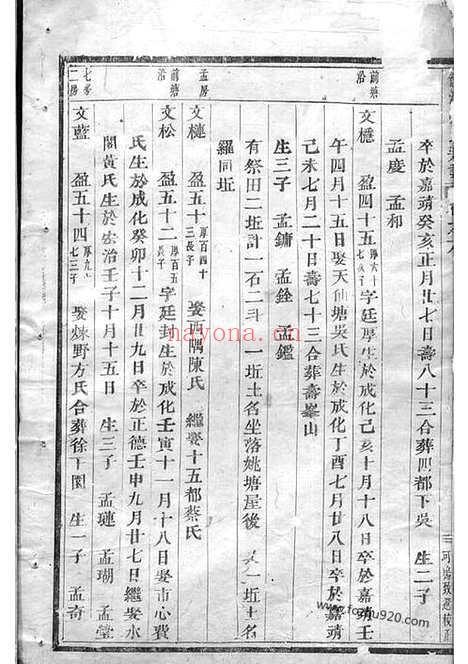 卒於嘉靖癸亥正月廿七日壽八十三合葬四都下吳 生二子
孟慶 孟和
前塘沿
文櫏 盈四十五 字廷厚生於成化己亥十月十八日卒於嘉靖壬
午四月十五日娶天仙塘吳氏生於成化丁酉七月廿八日卒於嘉靖
己未七月二十日壽七十三合葬壽峯山
生三子 孟鏞 孟銓 孟鑑
有祭田二坵計一石二斗 一坵土名坐落姚塘屋後 一坵土名
羅同坵
孟房
文槤 盈五十 厚百四十三長子 娶 隅陳氏 繼娶十五都蔡氏
前塘沿
文松 盈五十二 厚百五長子 字廷封生於成化壬寅十一月十八日娶市心費
氏生於成化癸卯十二月廿九日卒於正德壬申九月廿七日繼娶水
閣黃氏生於弘治壬子十月十五日 生三子 孟璉 孟瑚 孟瑩
七房二房
文藍 盈五十四 厚九十七三子 娶煉野方氏合葬徐下園 生一子 孟奇
nayona.cn
www.fozhu920.com